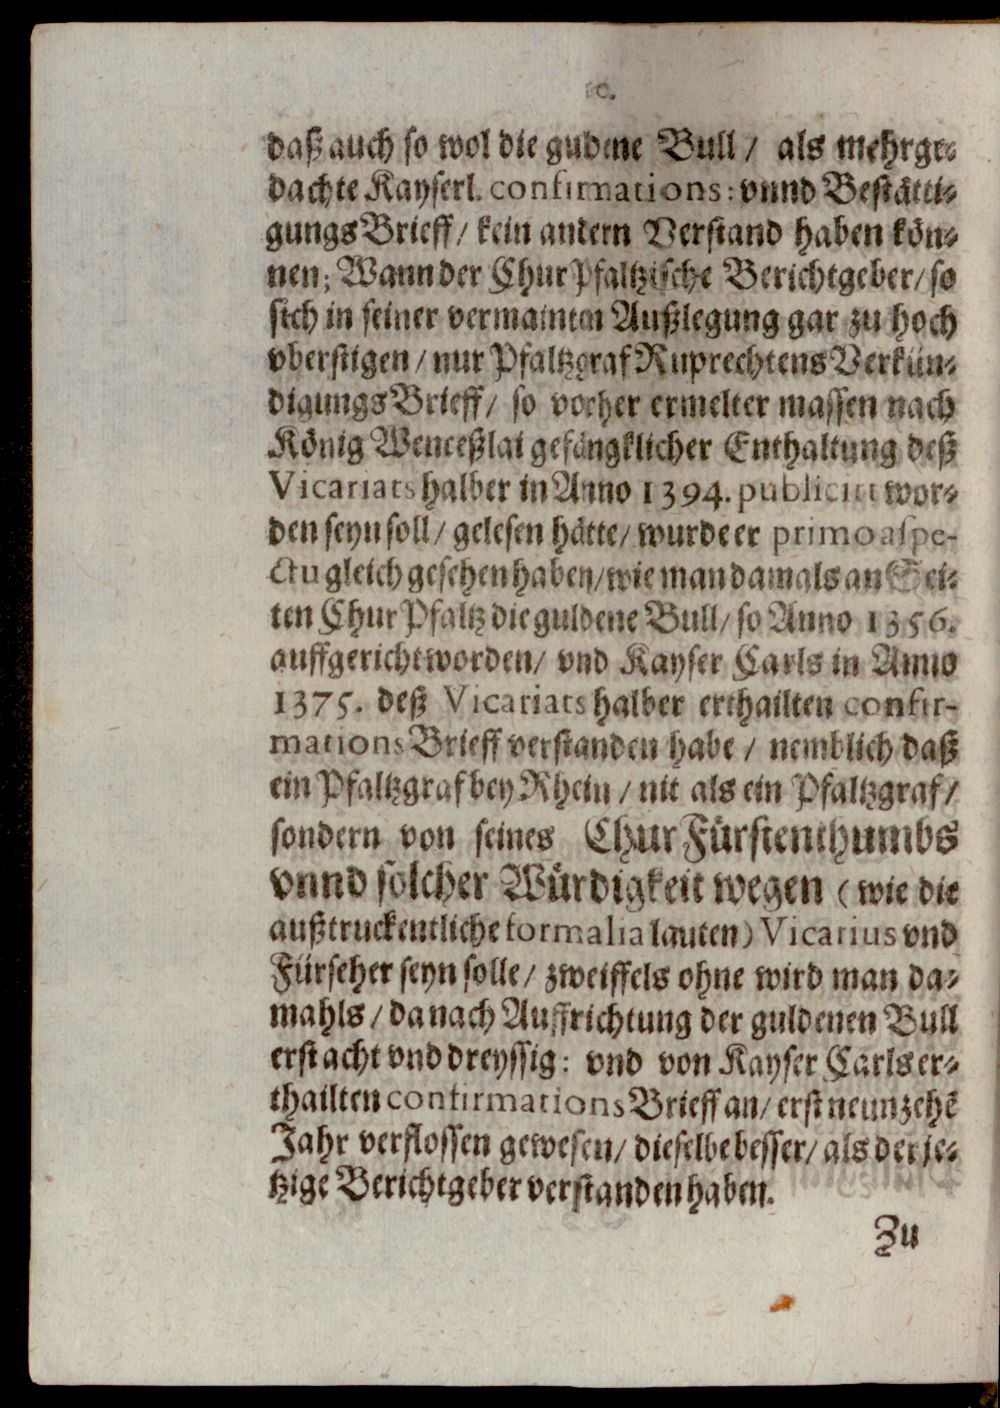 10.
daß auch so wol die guldene Bull / als mehrge-
dachte Kayserl. confirmations: vnnd Bestätti-
gungsBrieff / kein andern Verstand haben kön-
nen; Wann der ChurPfaltzische Berichtgeber / so
sich in seiner vermainten Außlegung gar zu hoch
vberstigen / nur Pfaltzgraf Ruprechtens Verkün-
digungsBrieff / so vorher ermelter massen nach
König Wenceßlai gefängklicher Enthaltung deß
Vicariats halber in Anno 1394. publiciert wor-
den seyn soll / gelesen hätte / wurde er primo aspe-
ctu gleich gesehen haben / wie man damals an Sei-
ten ChurPfaltz die guldene Bull / so Anno 1356.
auffgericht worden / vnd Kayser Carls in Anno
1375. deß Vicariats halber erthailten confir-
mationsBrieff verstanden habe / nemblich daß
ein Pfaltzgraf bey Rhein / nit als ein Pfaltzgraf /
sondern von seines ChurFürstenthumbs
vnnd solcher Würdigkeit wegen (wie die
außtruckentliche formalia lauten) Vicarius vnd
Fürseher seyn solle / zweiffels ohne wird man da-
mahls / da nach Auffrichtung der guldenen Bull
erst acht vnd dreyssig: vnd von Kayser Carls er-
thailten confirmationsBrieff an / erst neunzehē
Jahr verflossen gewesen / dieselbe besser / als der je-
tzige Berichtgeber verstanden haben.
Zu